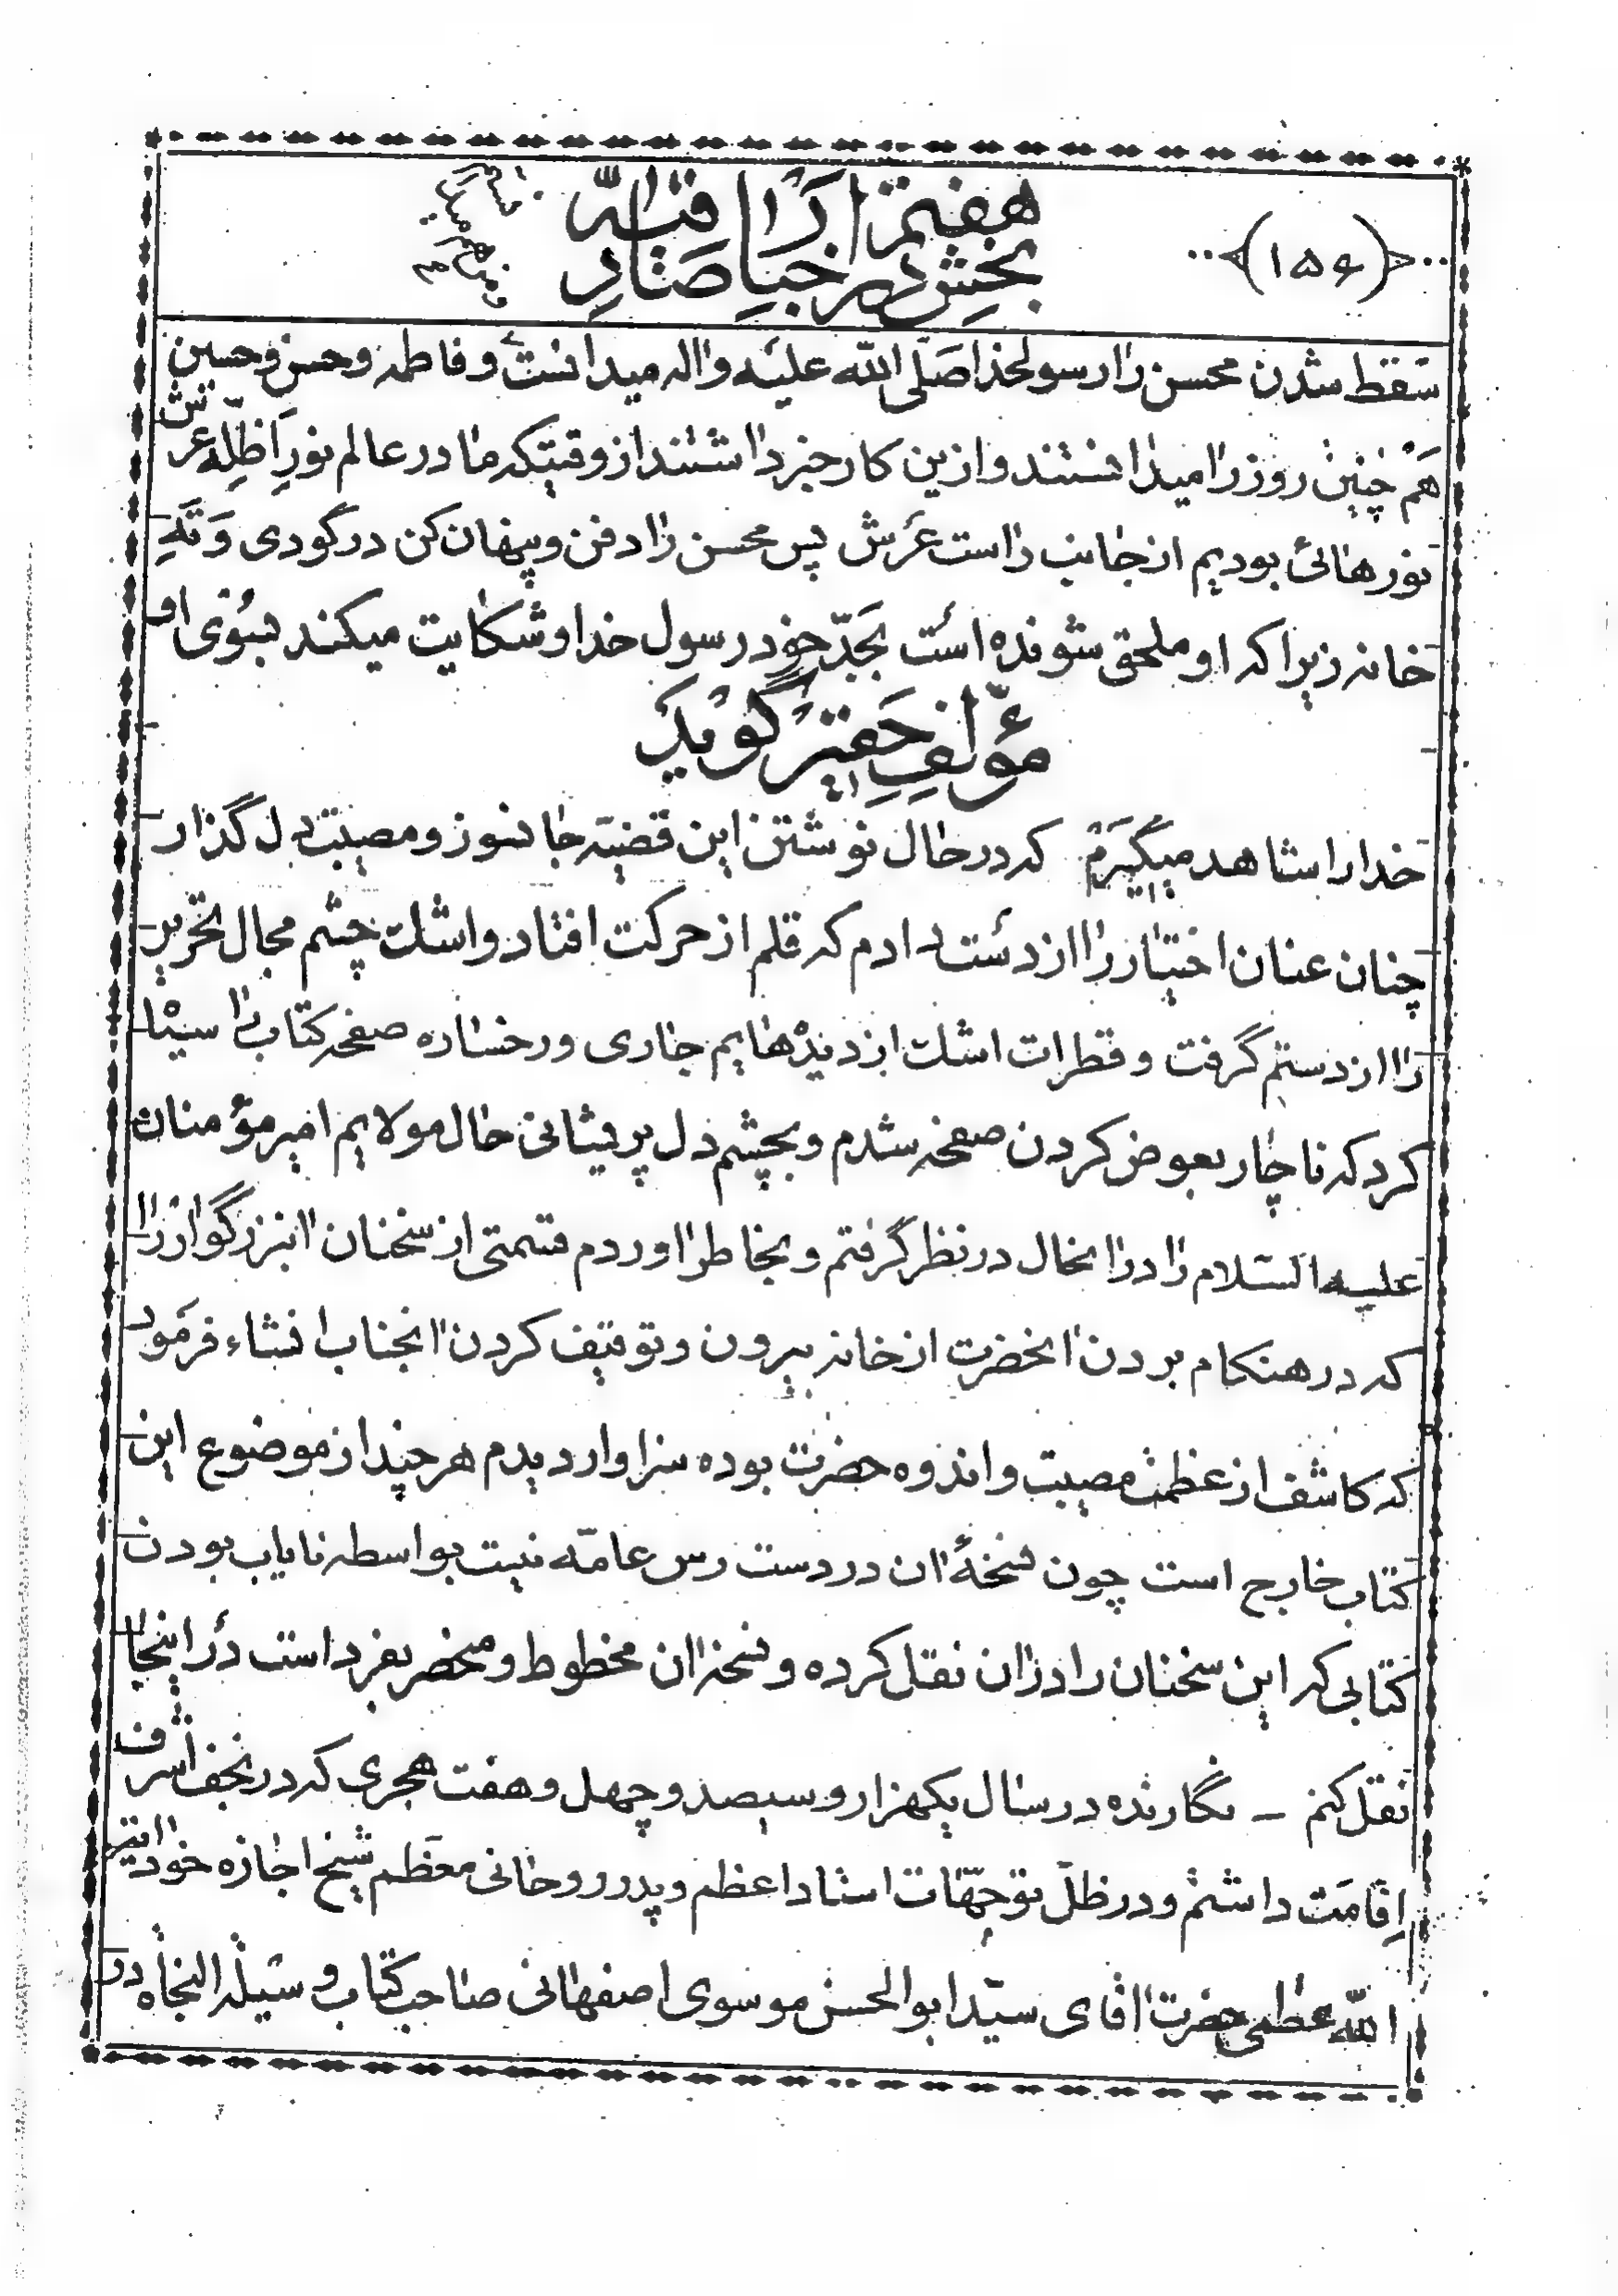 (۱۵۶)
بخش هفتم در اخبار صادقیه
سقط شدن محسن را رسولخدا صلی الله علیه واله میدانست و فاطمه و حسن و حسین
هم چنین روز را میدانستند و ازین کار خبر داشتند از وقتیکه ما در عالم نور اظلّه عرش
نورهائی بودیم از جانب راست عرش پس محسن را دفن و پنهان کن در گودی و تهِ
خانه زیرا که او ملحق شونده است بجدّ خود رسول خدا و شکایت میکند بسوی او
مؤلف حقیر گوید
خدا را شاهد میگیرم که در حال نوشتن این قضیّه جانسوز و مصیبت دل گداز
چنان عنان اختیار را از دست دادم که قلم از حرکت افتاد و اشک چشم مجال تحریر
را از دستم گرفت و قطرات اشک از دیدهایم جاری و رخساره صفحه کتاب را سیاه
کرد که ناچار بعوض کردن صفحه شدم و بچشم دل پریشانی حال مولایم امیر مؤمنان
علیه السلام را در انحال در نظر گرفتم و بخاطر اوردم قسمتی از سخنان انبزرگوار را
که در هنکام بردن انحضرت از خانه بیرون و توقیف کردن انجناب افشاء فرمود
که کاشف از عظمت مصیبت و اندوه حضرت بوده سزاوار دیدم هر چند از موضوع این
کتاب خارج است چون نسخهٔ ان در دست رس عامّه نیست بواسطه نایاب بودن
کتابی که این سخنان را در ان نقل کرده و نسخه ان مخطوط و منحضر بفرد است در اینجا
نقل کنم – نگارنده در سال یکهزار و سیصد و چهل و هفت هجری که در نجف اشرف
اِقامت داشتم و در ظلّ توجّهات استاد اعظم و پدر روحانی معظم شیخ اجازه خود ایة
الله عظمی حضرت اقای سیّد ابوالحسن موسوی اصفهانی صاحب کتاب وسیلة النجاه در